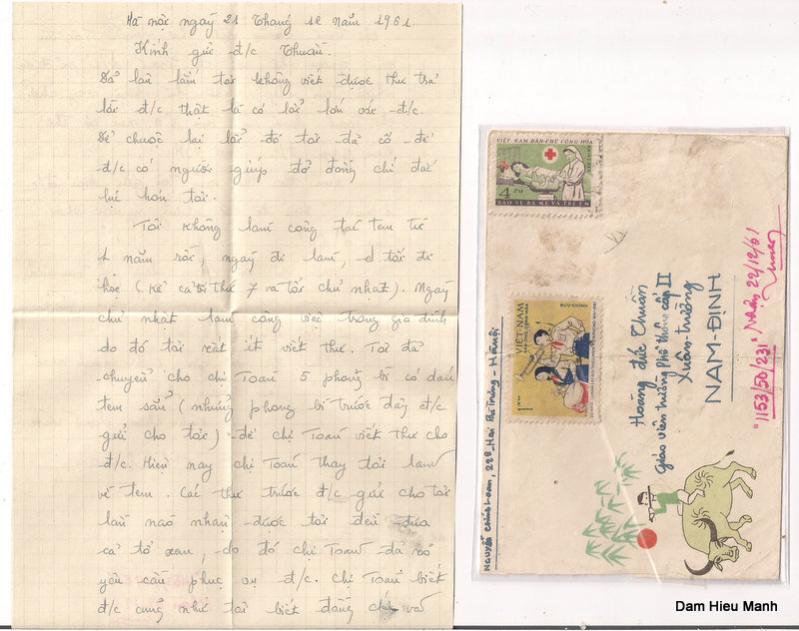 Hà nội ngày 21 Tháng 12 năm 1961
Kính gửi đ/c Thuần.
Đã lâu lắm tôi không viết được thư trả
lời đ/c thật là có lỗi lớn với đ/c.
Để chuộc lại lỗi đó tôi đã cố để
đ/c có người giúp đỡ đồng chí đắc
lực hơn tôi.
Tôi không làm công tác tem từ
1 năm rồi, ngày đi làm, tối đi
học (kể cả thứ 7 và tối chủ nhật). Ngày
chủ nhật làm công việc trong gia đình
do đó tôi rất ít viết thư. Tôi đã
chuyển cho chị Toàn 5 phong bì có dán
tem sẵn (những phong bì trước đây đ/c
gửi cho tôi) để chị Toàn viết thư cho
đ/c. Hiện nay chị Toàn thay tôi làm
về tem. Các thư trước đ/c gửi cho tôi
lần nào nhận được tôi đều đưa
cả tổ xem, do đó chị Toàn đã có
yêu cầu phục vụ đ/c. Chị Toàn biết
đ/c cũng như tôi biết đồng chí và
VIỆT-NAM DÂN-CHỦ CỘNG-HÒA
4
BẢO VỆ BÀ MẸ VÀ TRẺ EM
BƯU CHÍNH
VIỆT-NAM
DÂN CHỦ CỘNG HÒA
1
Nguyễn Chính Lam, 228 Hai Bà Trưng - Hà nội
Hoàng đức Thuần
Giáo viên trường Phổ thông cấp II
Xuân-trường
NAM-ĐỊNH
"1153/50/231" Nhận 22/12/61
Dam Hieu Manh